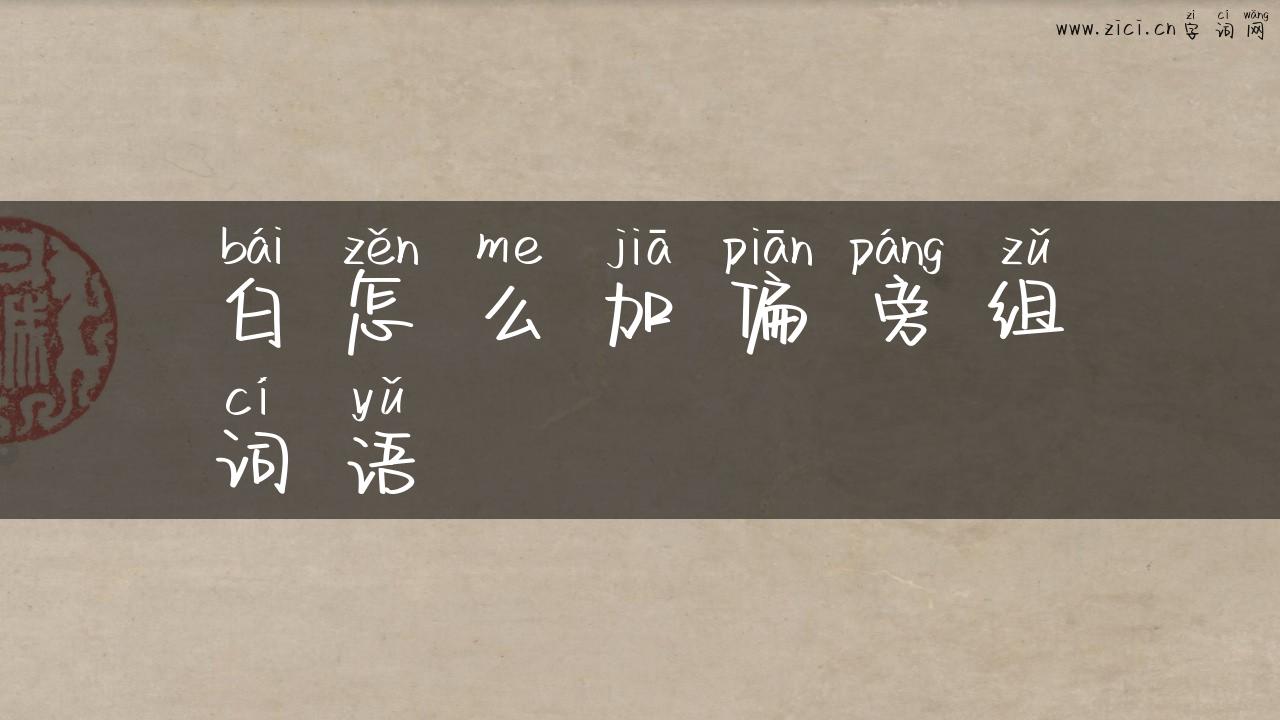 zì cí wǎng
www.zici.cn字词网
bái zěn me jiā piān páng zǔ
白怎么加偏旁组
cí yǔ
词语